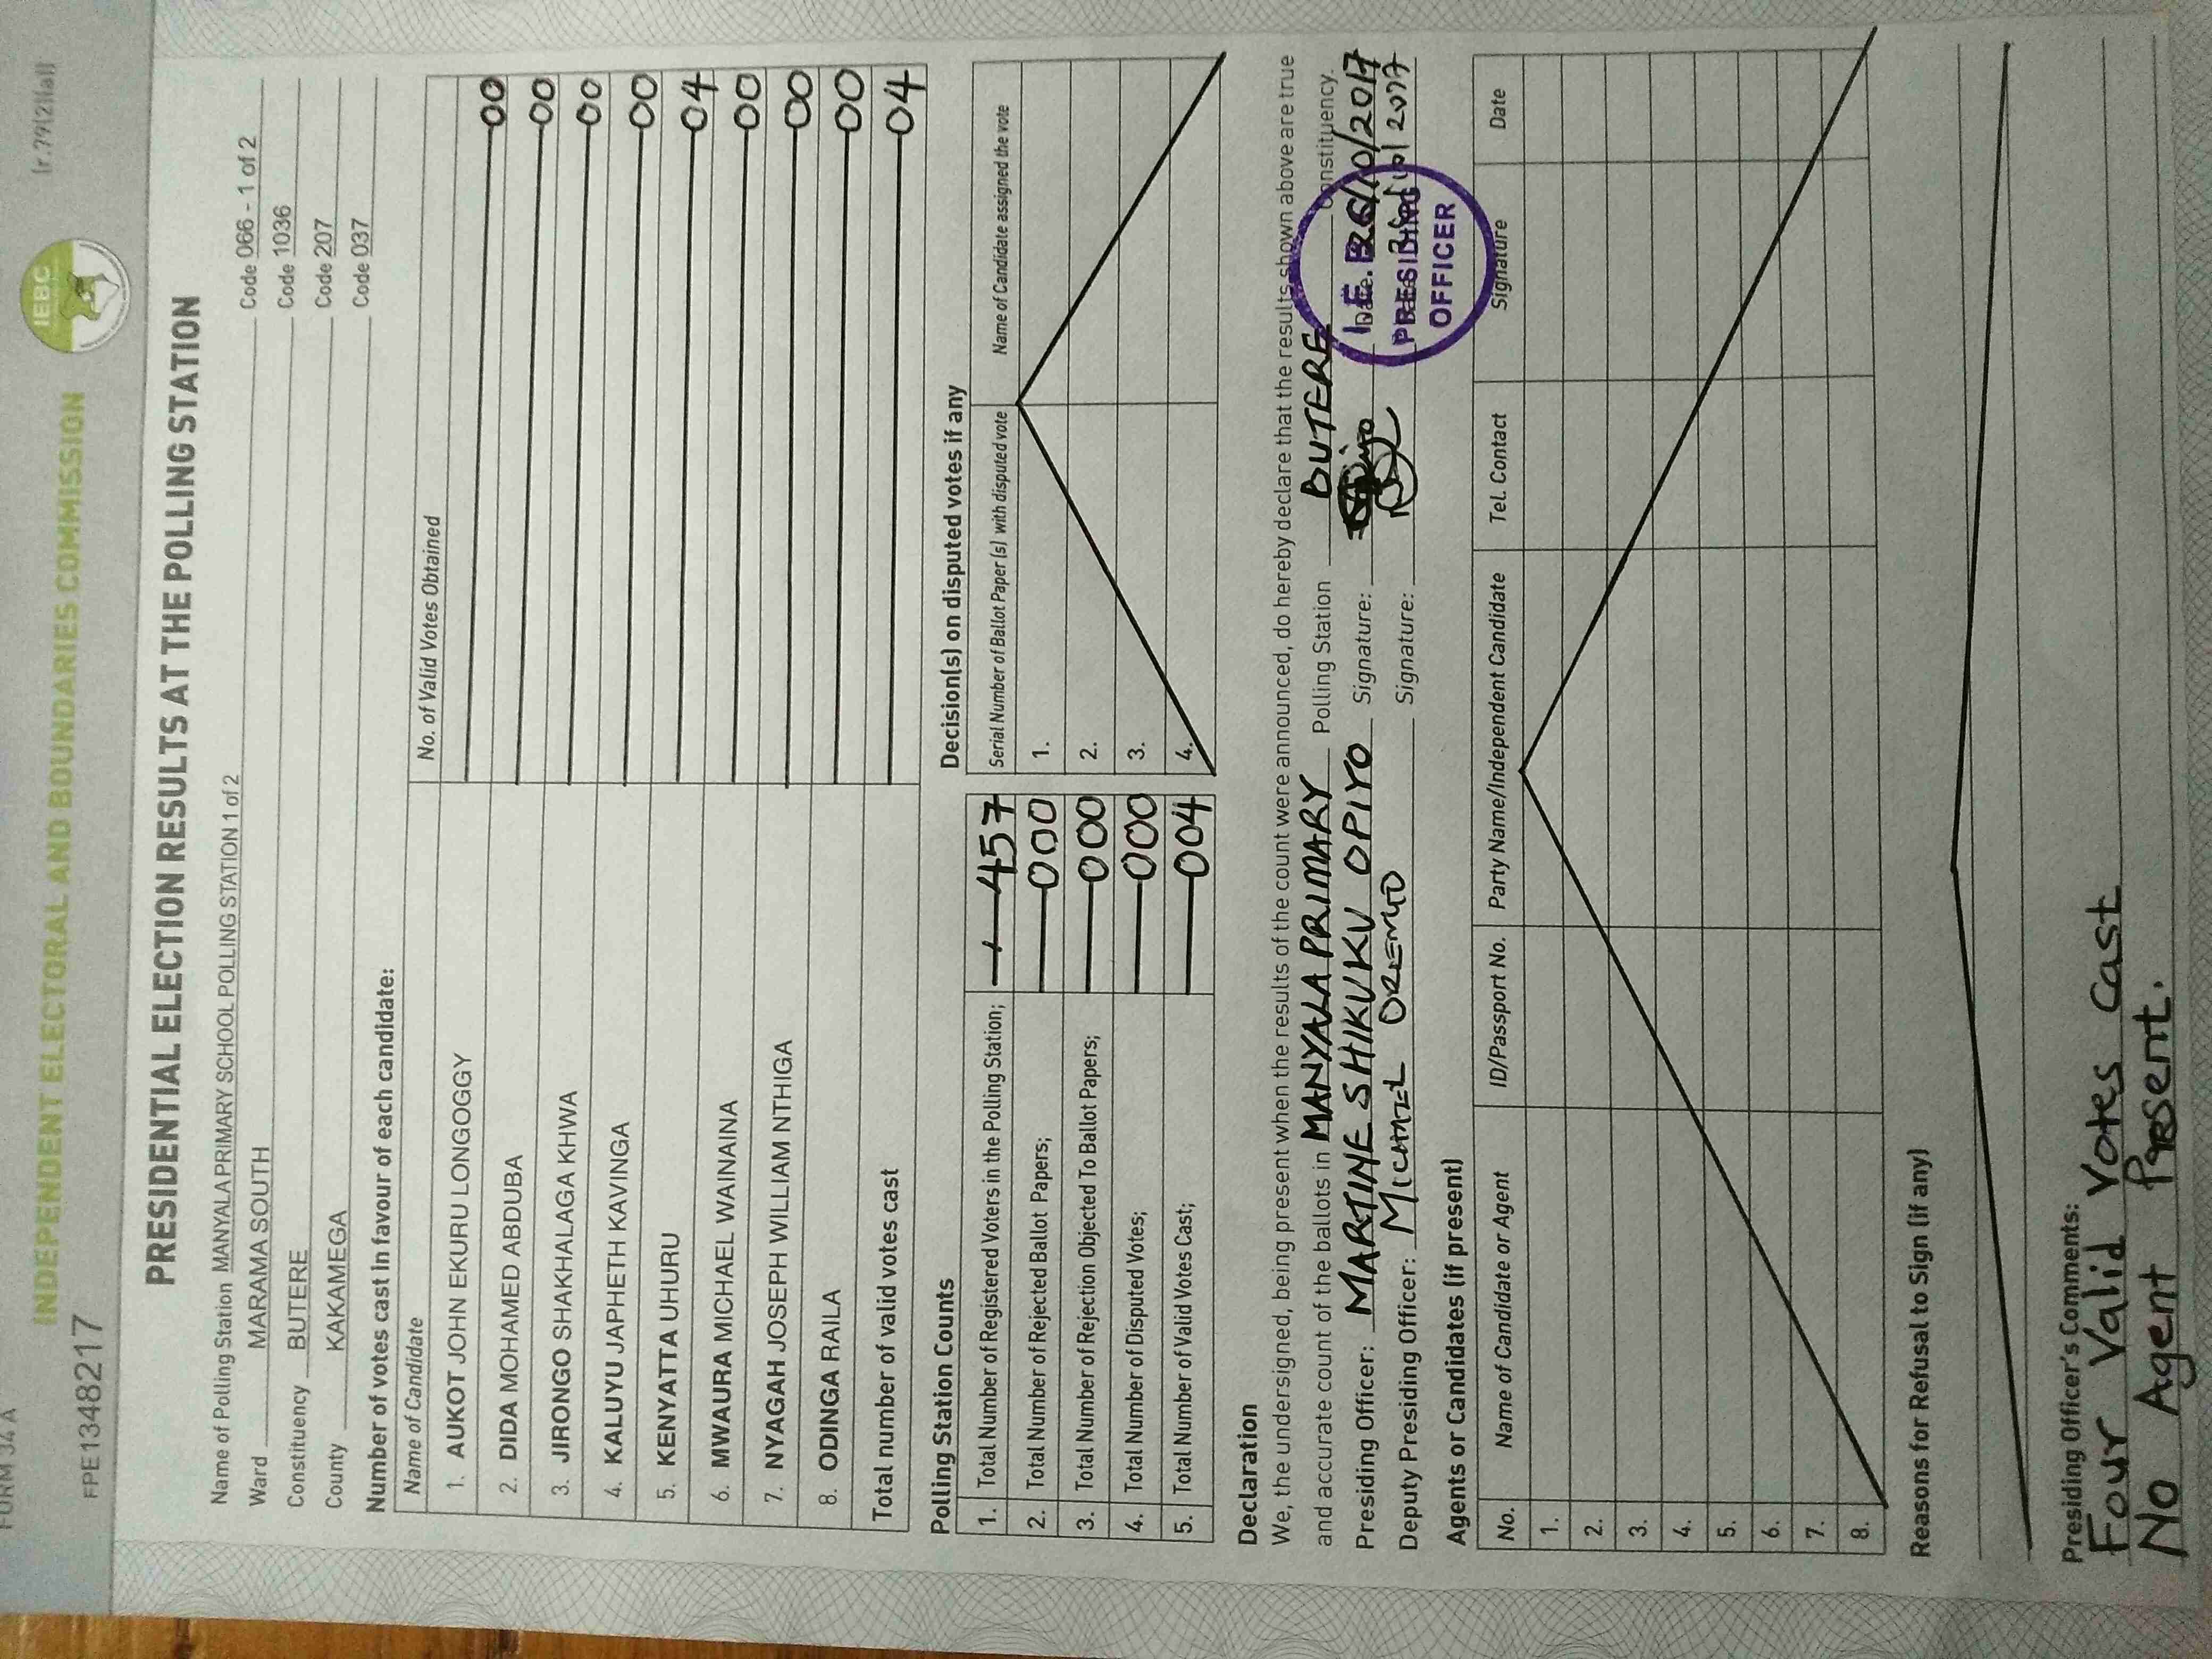 FORM 34 A
(r.79(2)(a))
INDEPENDENT ELECTORAL AND BOUNDARIES COMMISSION
IEBC
FPE1348217
PRESIDENTIAL ELECTION RESULTS AT THE POLLING STATION
Name of Polling Station MANYALA PRIMARY SCHOOL POLLING STATION 1 of 2 Code 066 - 1 of 2
Ward MARAMA SOUTH Code 1036
Constituency BUTERE Code 207
County KAKAMEGA Code 037
Number of votes cast in favour of each candidate:
Name of Candidate No. of Valid Votes Obtained
1. AUKOT JOHN EKURU LONGOGGY 00
2. DIDA MOHAMED ABDUBA 00
3. JIRONGO SHAKHALAGA KHWA 00
4. KALUYU JAPHETH KAVINGA 00
5. KENYATTA UHURU 04
6. MWAURA MICHAEL WAINAINA 00
7. NYAGAH JOSEPH WILLIAM NTHIGA 00
8. ODINGA RAILA 00
Total number of valid votes cast 04
Polling Station Counts
1. Total Number of Registered Voters in the Polling Station; 457
2. Total Number of Rejected Ballot Papers; 000
3. Total Number of Rejection Objected To Ballot Papers; 000
4. Total Number of Disputed Votes; 000
5. Total Number of Valid Votes Cast; 004
Decision(s) on disputed votes if any
Serial Number of Ballot Paper (s) with disputed vote Name of Candidate assigned the vote
1.
2.
3.
4.
Declaration
We, the undersigned, being present when the results of the count were announced, do hereby declare that the results shown above are true
and accurate count of the ballots in MANYALA PRIMARY Polling Station BUTERE Constituency.
Presiding Officer: MARTINE SHIKUKU OPIYO Signature: Date: 26/10/2017
Deputy Presiding Officer: MICHAEL Signature: 2017
PRESIDING
OFFICER
Agents or Candidates (if present)
No. Name of Candidate or Agent ID/Passport No. Party Name/Independent Candidate Tel. Contact Signature Date
1.
2.
3.
4.
5.
6.
7.
8.
Reasons for Refusal to Sign (if any)
Presiding Officer's Comments:
Four Valid Votes Cast
No Agent Present.